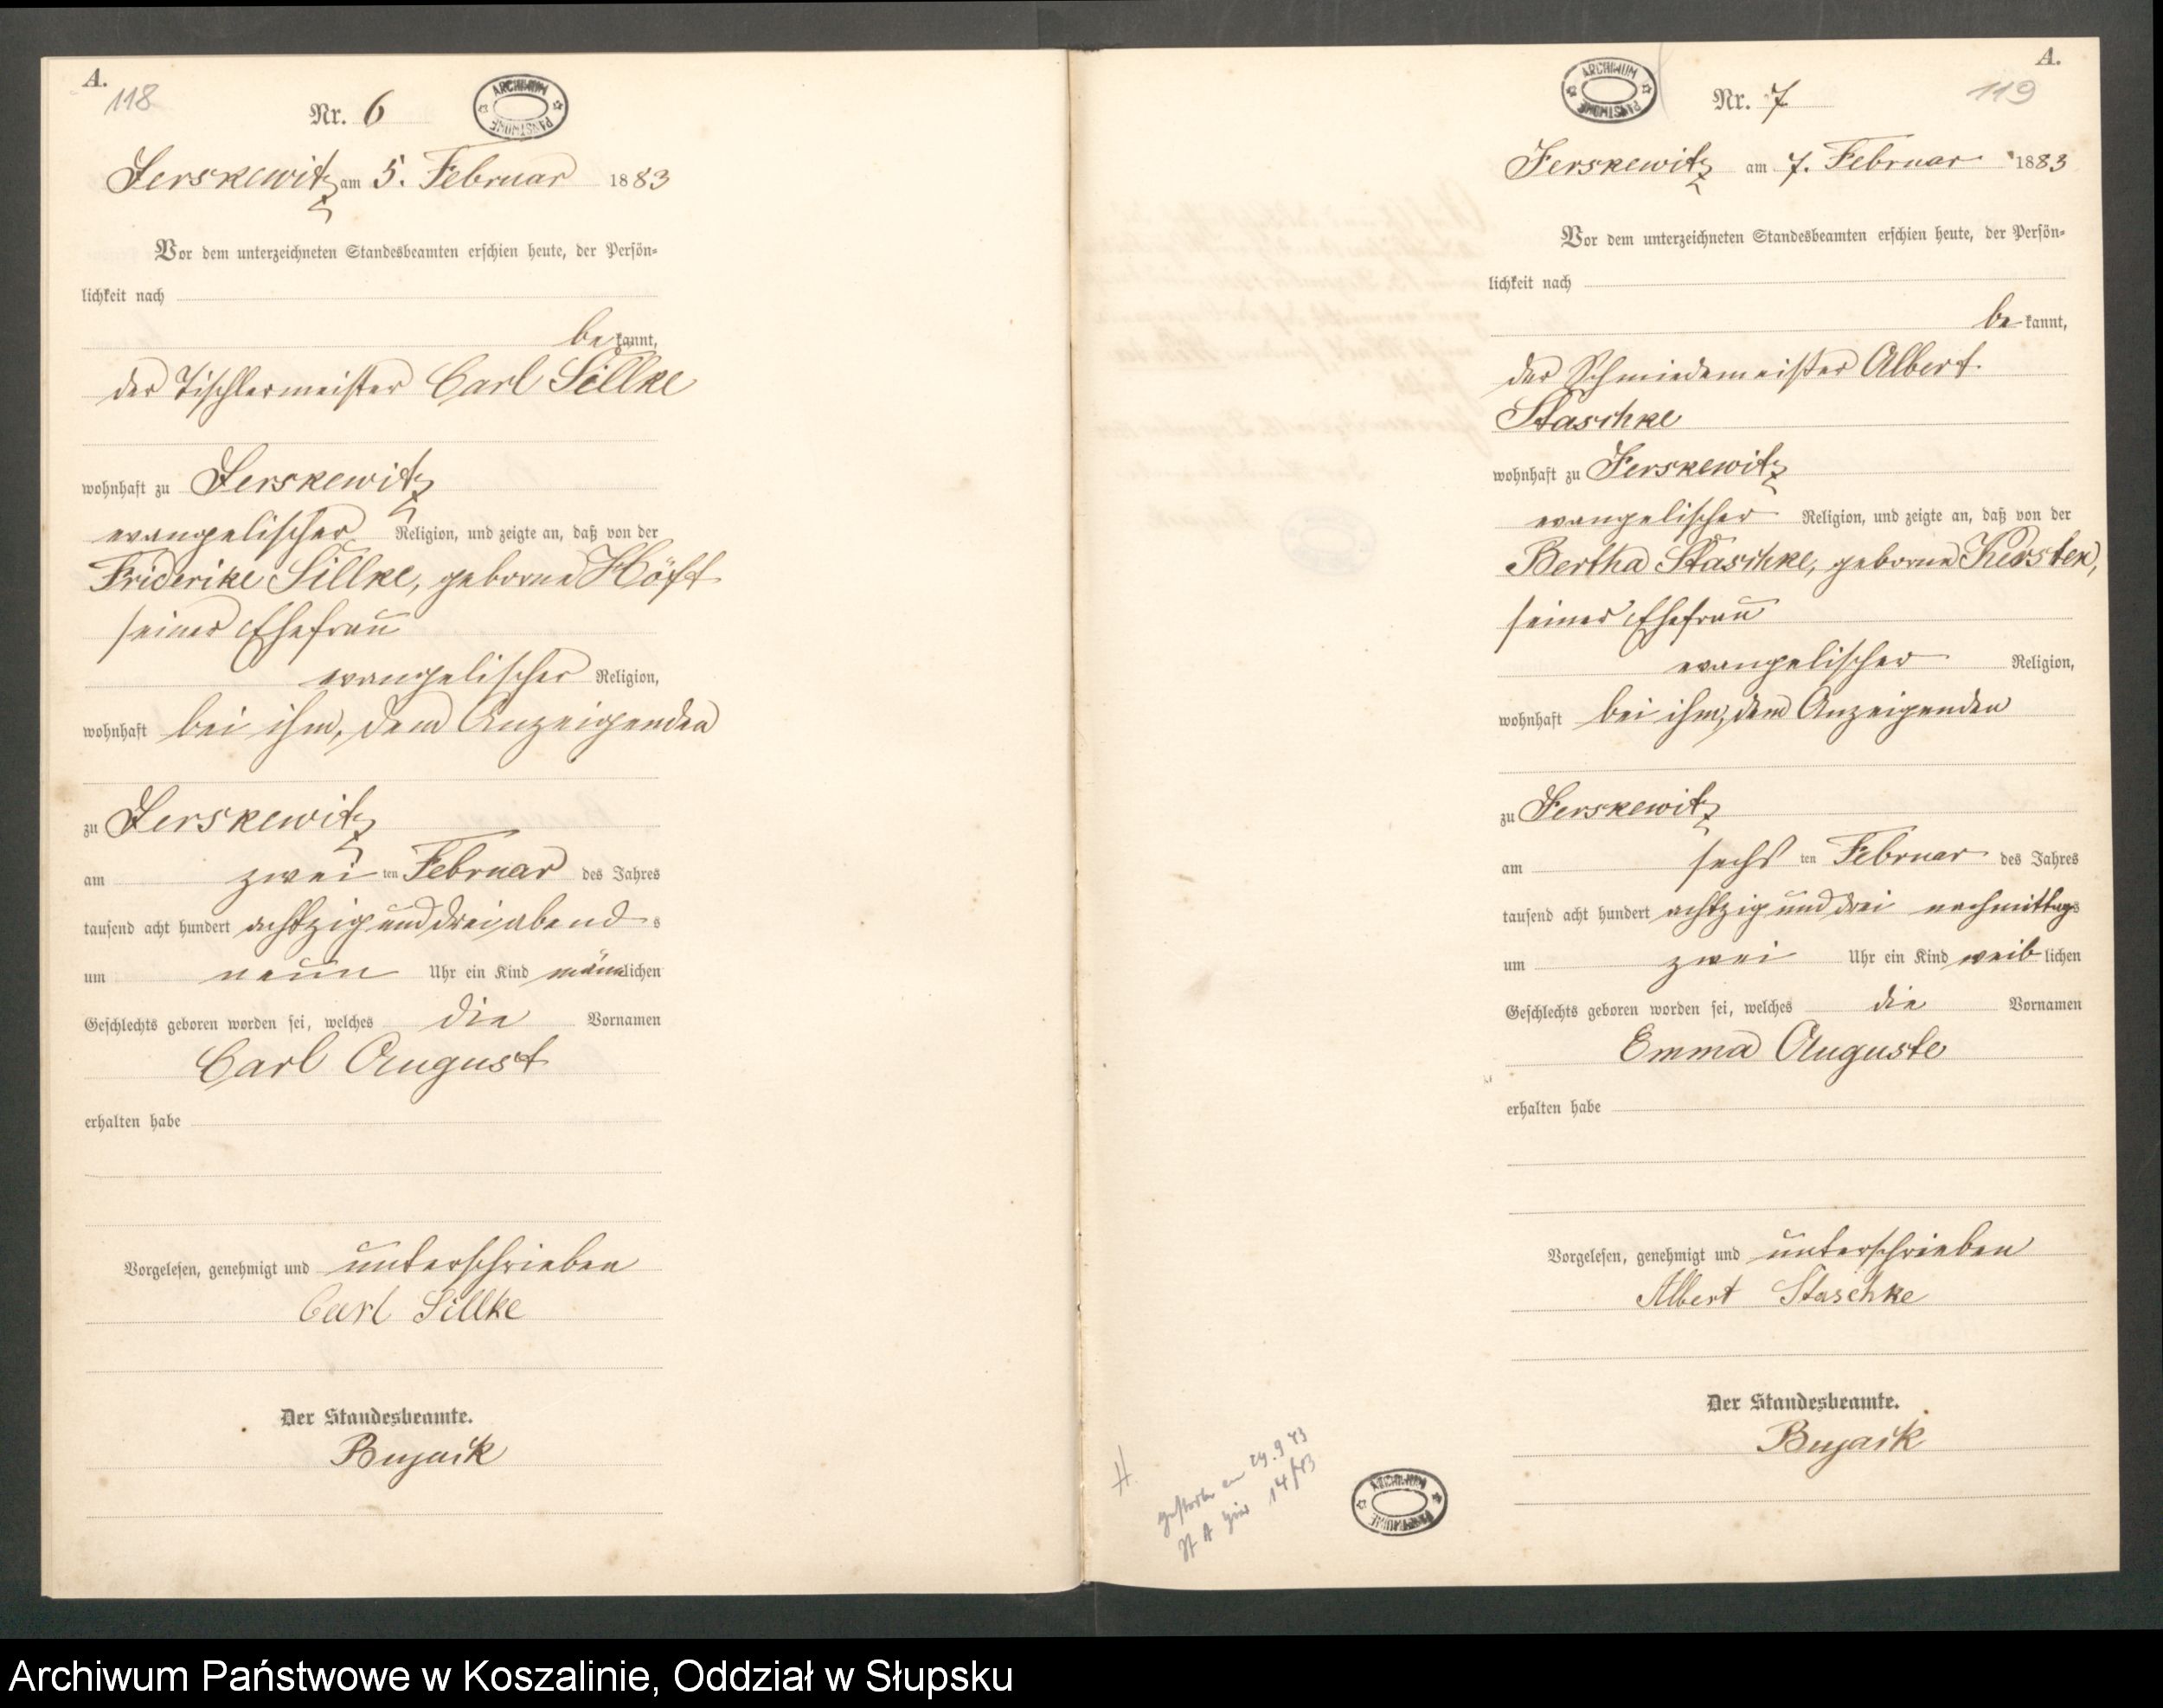 A.
118
Nr. 6
ARCHIWUM PAŃSTWOWE
Jerskewitz am 5. Februar 1883
Vor dem unterzeichneten Standesbeamten erschien heute, der Persön-
lichkeit nach
bekannt,
der Tischlermeister Carl Sillke
wohnhaft zu Jerskewitz
evangelischer Religion, und zeigte an, daß von der
Friderike Sillke, geborne Höft
seiner Ehefrau
evangelischer Religion,
wohnhaft bei ihm, dem Anzeigenden
zu Jerskewitz
am zwei ten Februar des Jahres
tausend acht hundert achtzig und drei abend s
um neun Uhr ein Kind männlichen
Geschlechts geboren worden sei, welches die Vornamen
Carl August
erhalten habe
Vorgelesen, genehmigt und unterschrieben
Carl Sillke
Der Standesbeamte.
Bujack
A.
119
ARCHIWUM PAŃSTWOWE
Nr. 7
Jerskewitz am 7. Februar 1883
Vor dem unterzeichneten Standesbeamten erschien heute, der Persön-
lichkeit nach
bekannt,
der Schmiedemeister Albert
Staschke
wohnhaft zu Jerskewitz
evangelischer Religion, und zeigte an, daß von der
Bertha Staschke, geborne Kersten,
seiner Ehefrau
evangelischer Religion,
wohnhaft bei ihm, dem Anzeigenden
zu Jerskewitz
am sechs ten Februar des Jahres
tausend acht hundert achtzig und drei nachmittags
um zwei Uhr ein Kind weiblichen
Geschlechts geboren worden sei, welches die Vornamen
Emma Auguste
erhalten habe
Vorgelesen, genehmigt und unterschrieben
Albert Staschke
Der Standesbeamte.
Bujack
gestorben am 29.9 43
St A hier 14/43
ARCHIWUM PAŃSTWOWE
Archiwum Państwowe w Koszalinie, Oddział w Słupsku